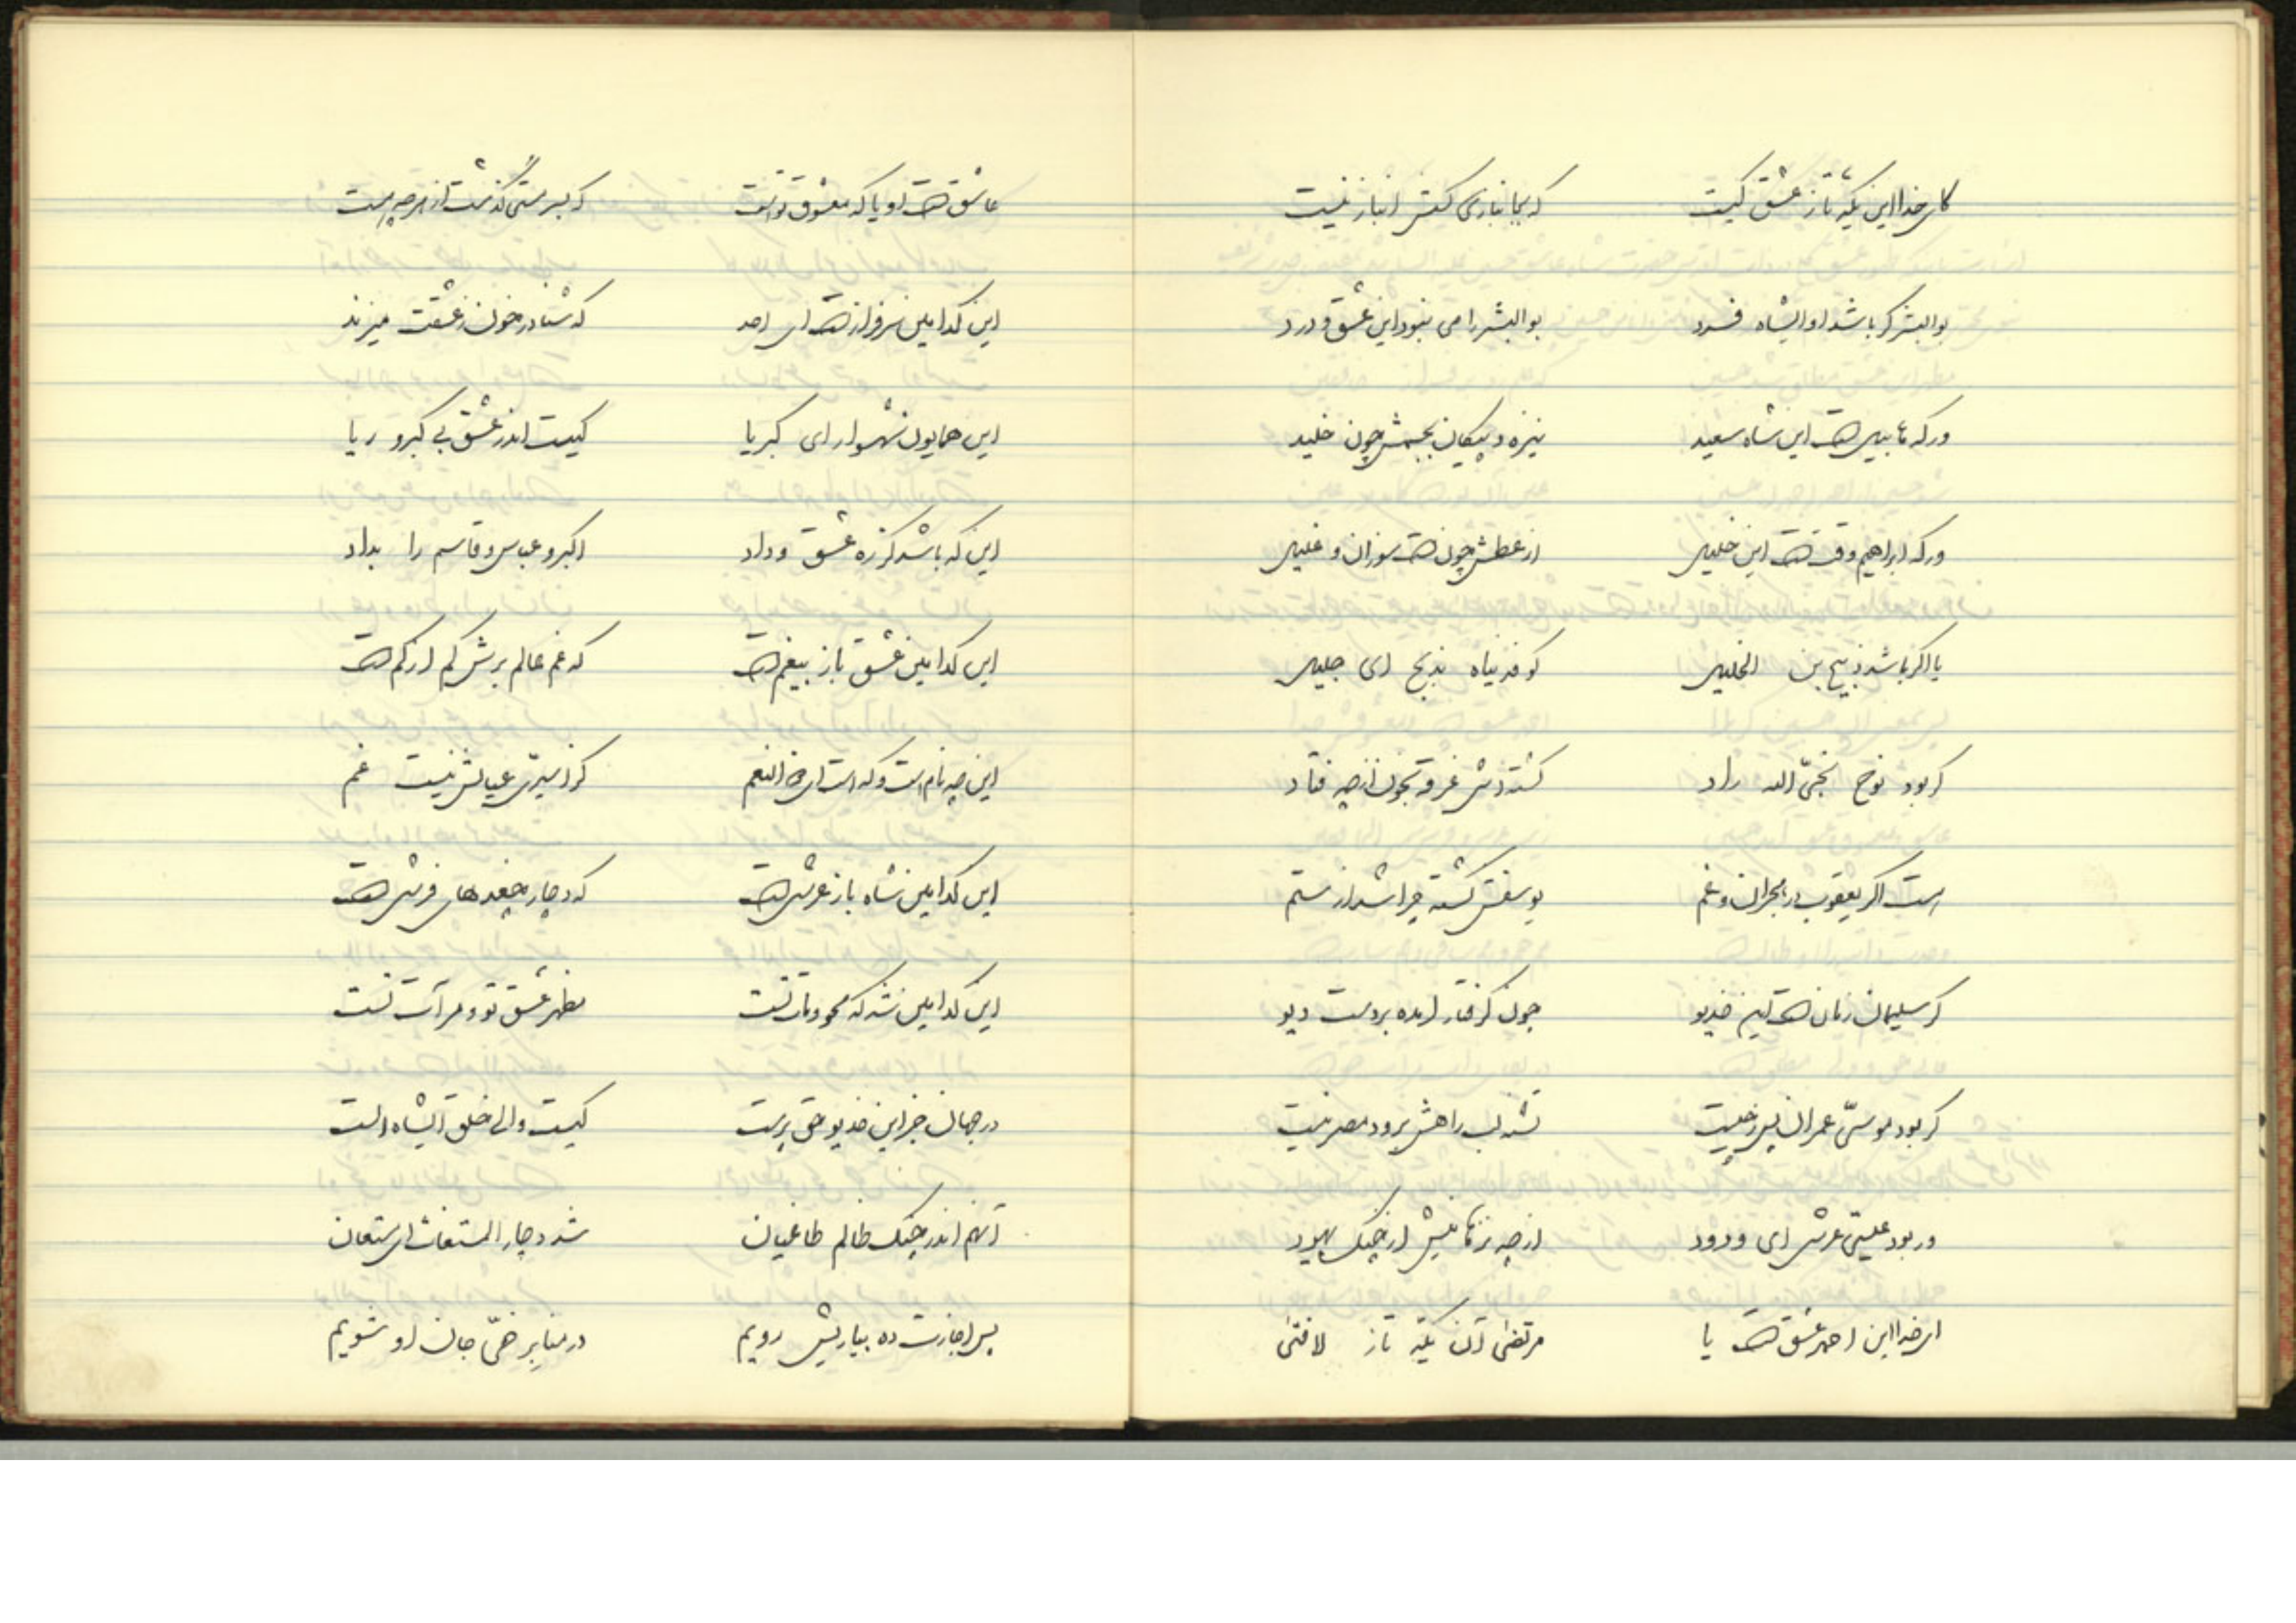 کای خدا این یکه تاز عشق کیست که بجانبازی کسش انباز نیست
بوالبشر گر باشد او ایشاه فرد بوالبشر را می نبود این عشق و درد
ور که هابیل است این شاه سعید نیزه و پیکان بجسمش چون خلید
ور که ابراهیم وقت است این خلیل از عطش چون است سوزان و علیل
یا اگر باشد ذبیح بن الخلیل کو فدیناه بذبح ای جلیل
گر بود نوح نجیّ الله راد کشتیش غرقه بخون از چه فتاد
است اگر یعقوب در هجران و غم یوسفش کشته چرا شد از ستم
گر سلیمان زمان است این خدیو چون گرفتار آمده بر دست دیو
گر بود موسیّ عمران پس ز چیست تشنه لب راهش برود مصر نیست
ور بود عیسیّ عرش ای ودود از چه نرهانیش از چنگ یهود
ای خدا این احمد عشق است یا مرتضی آن یکه تاز لافتی
عاشق است او یا که معشوق تو است که بسرمستی گذشت از هر چه هست
این کدامین سرفراز است ای احد که شنا در خون ز عشقت میزند
این همایون شهسوار ای کبریا کیست اندر عشق بی کبر و ریا
این که باشد کز ره عشق و داد اکبر و عباس و قاسم را بداد
این کدامین عشق باز بیغم است که غم عالم برش کم از کم است
این چه نام است و که است ای ذا النعم کز اسیریّ عیالش نیست غم
این کدامین شاه باز عرشی است که دچار جغدهای فرشی است
این کدامین شه که محو ذات تست مظهر عشق تو و مرآت تست
در جهان جز این خدیو حق پرست کیست والی خلق ایشاه الست
آنهم اندر چنگ ظالم طاغیان شد دچار المستغاث ای مستعان
پس اجازت ده بیاریش رویم در منابر ضحّی جان او شویم